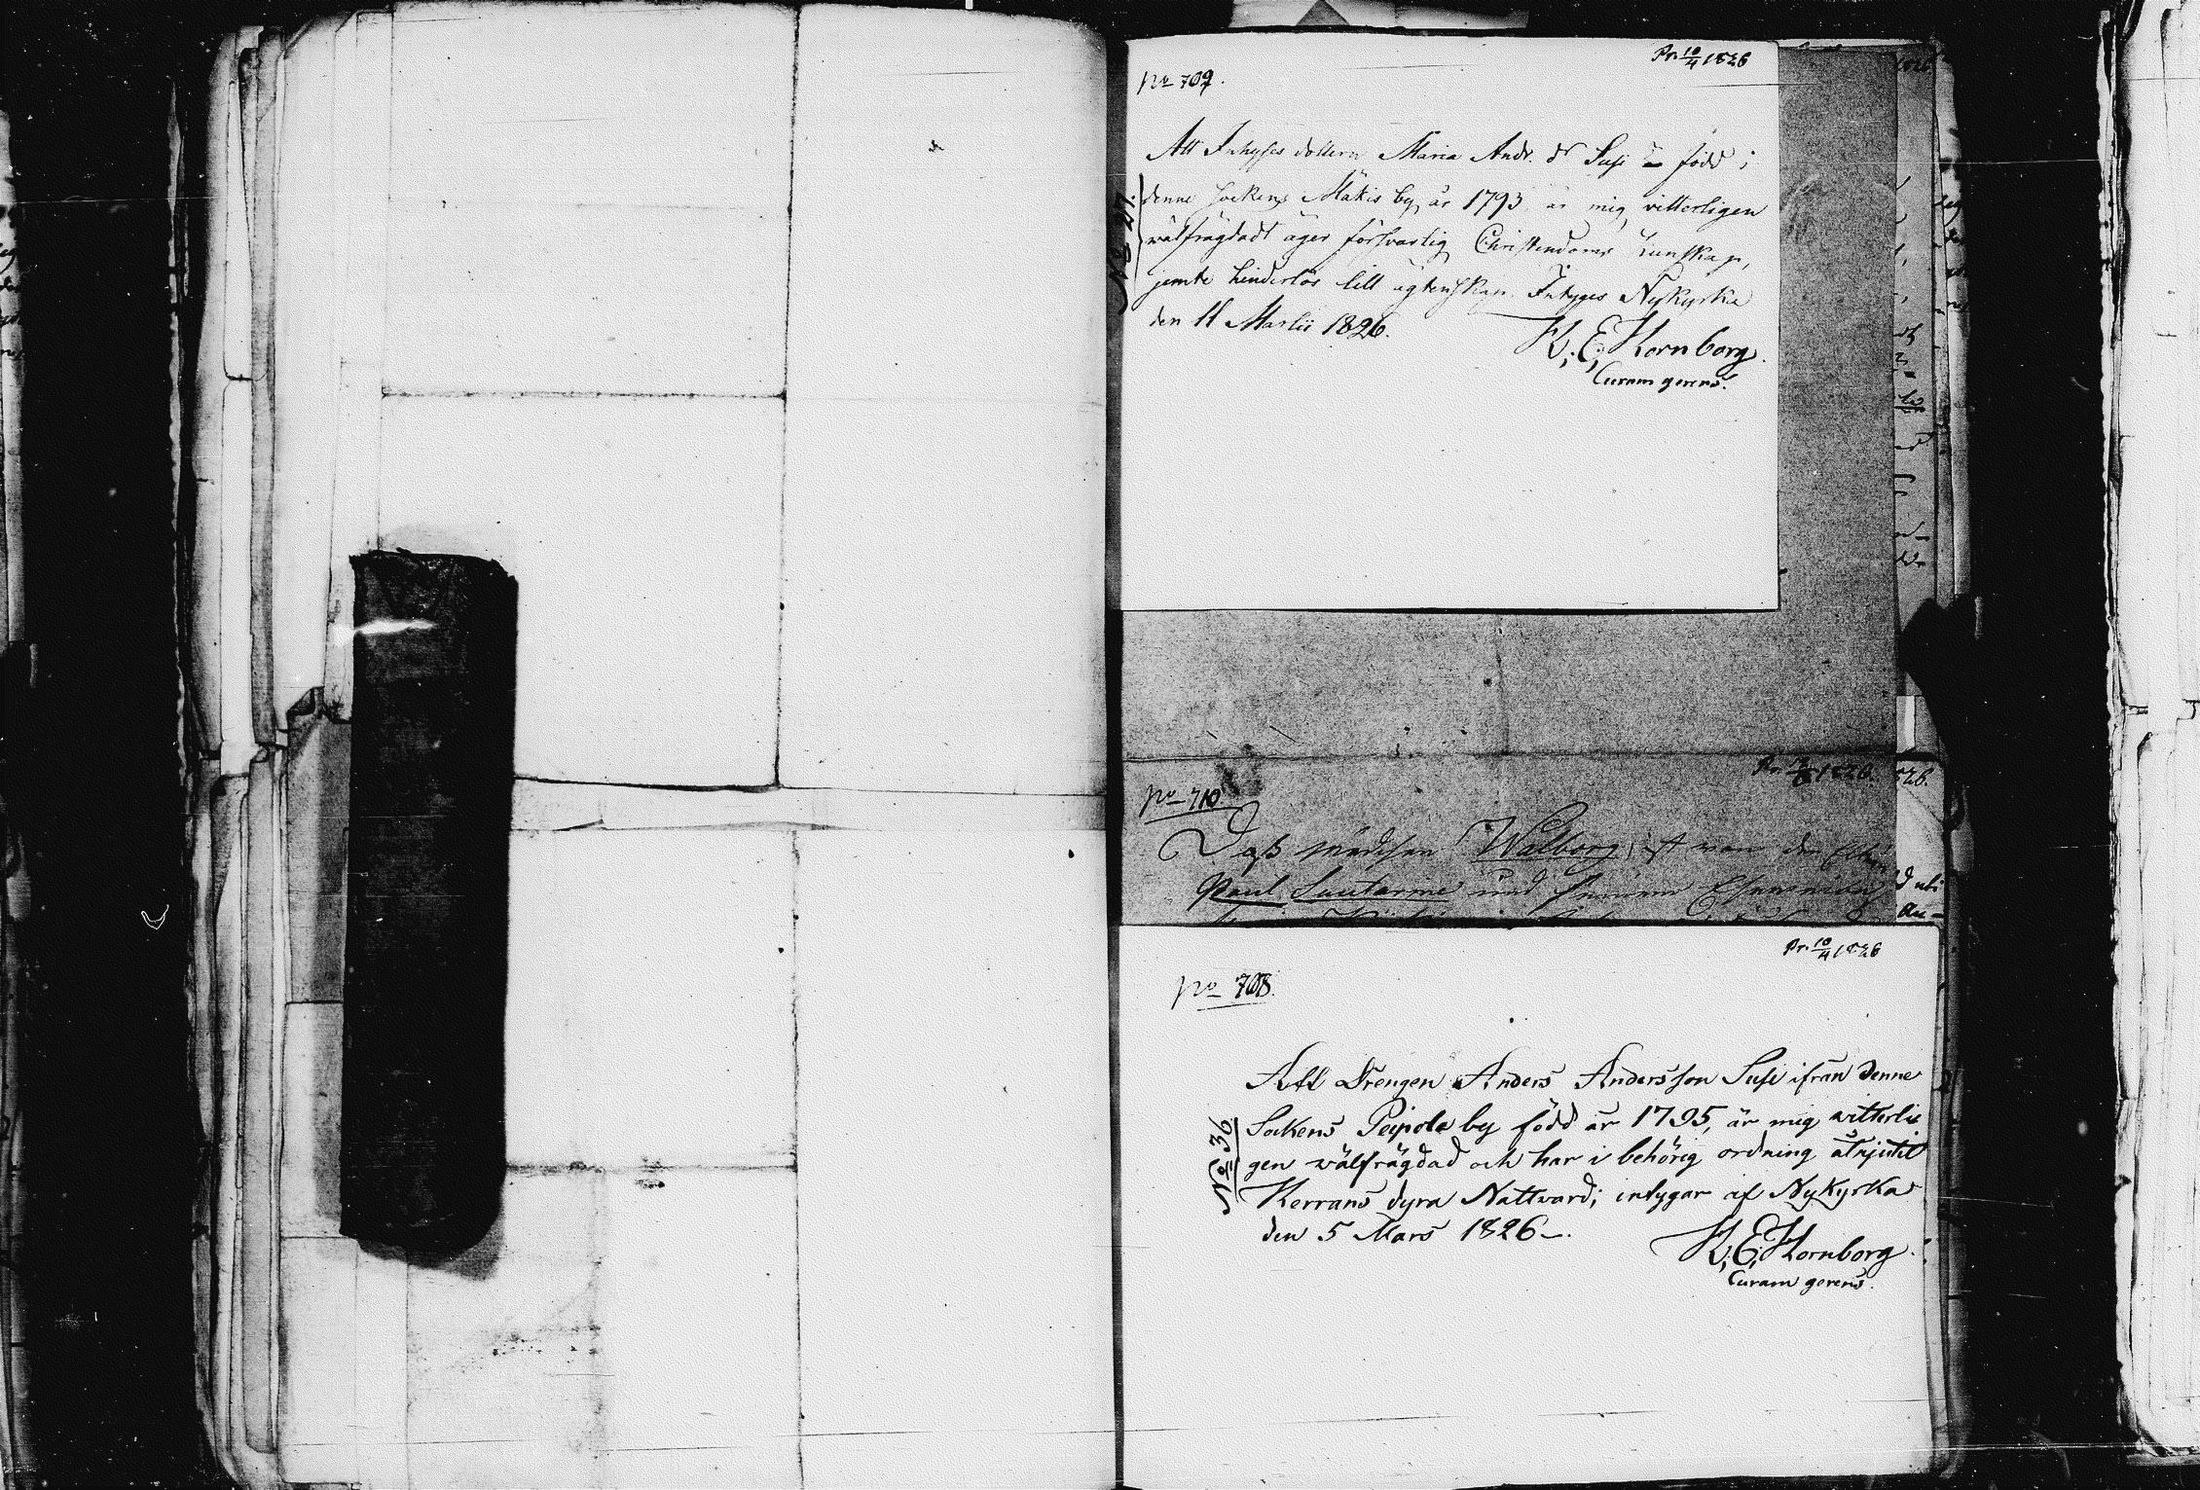 Pr. 10/4 1826
No 709.
Att Inhyses dottern Maria Andr. dr Susi är född i
denne Sockens Mäkis by år 1793 är mig vitterligen
wälfrägdadt äger försvarlig Christendoms kunskap,
jemte hinderlös till ägtenskap. Intyges Nykyrka
den 11 Martii 1826.
K. E. Hornborg.
Curam gerens.
No 27.
Pr. 1826.
No 710
Daß mädchen Walborg ist von den
Paul Lautarine und seinem
Pr. 10/4 1826
No 708.
Att Drengen Anders Andersson Susi ifrån denne
Sockens Peipola by född år 1795, är mig witterli
gen wälfrägdad och har i behörig ordning åtnjutit
Herrans dyra Nattvard; intygar af Nykyrka
den 5 Mars 1826.
K. E. Hornborg.
Curam gerens.
No 36